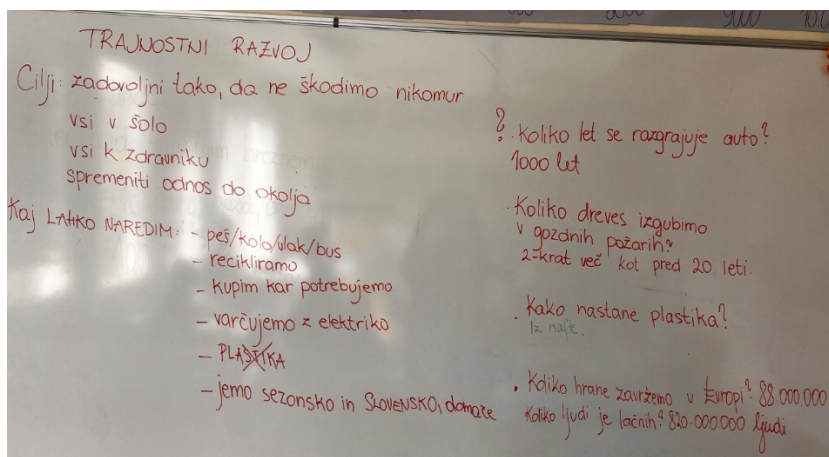 TRAJNOSTNI RAZVOJ
Cilji: zadovoljni tako, da ne škodimo nikomur
vsi v šolo
vsi k zdravniku
spremeniti odnos do okolja
Kaj LAHKO NAREDIM: - peš/kolo/vlak/bus
- recikliramo
- kupim kar potrebujemo
- varčujemo z elektriko
- PLASTIKA
- jemo sezonsko in SLOVENSKO, domače
? . Koliko let se razgrajuje auto?
1000 let
. Koliko dreves izgubimo
v gozdnih požarih?
2-krat več kot pred 20 leti.
. Kako nastane plastika?
Iz nafte.
. Koliko hrane zavržemo v Evropi? 88.000.000
Koliko ljudi je lačnih? 820.000.000 ljudi